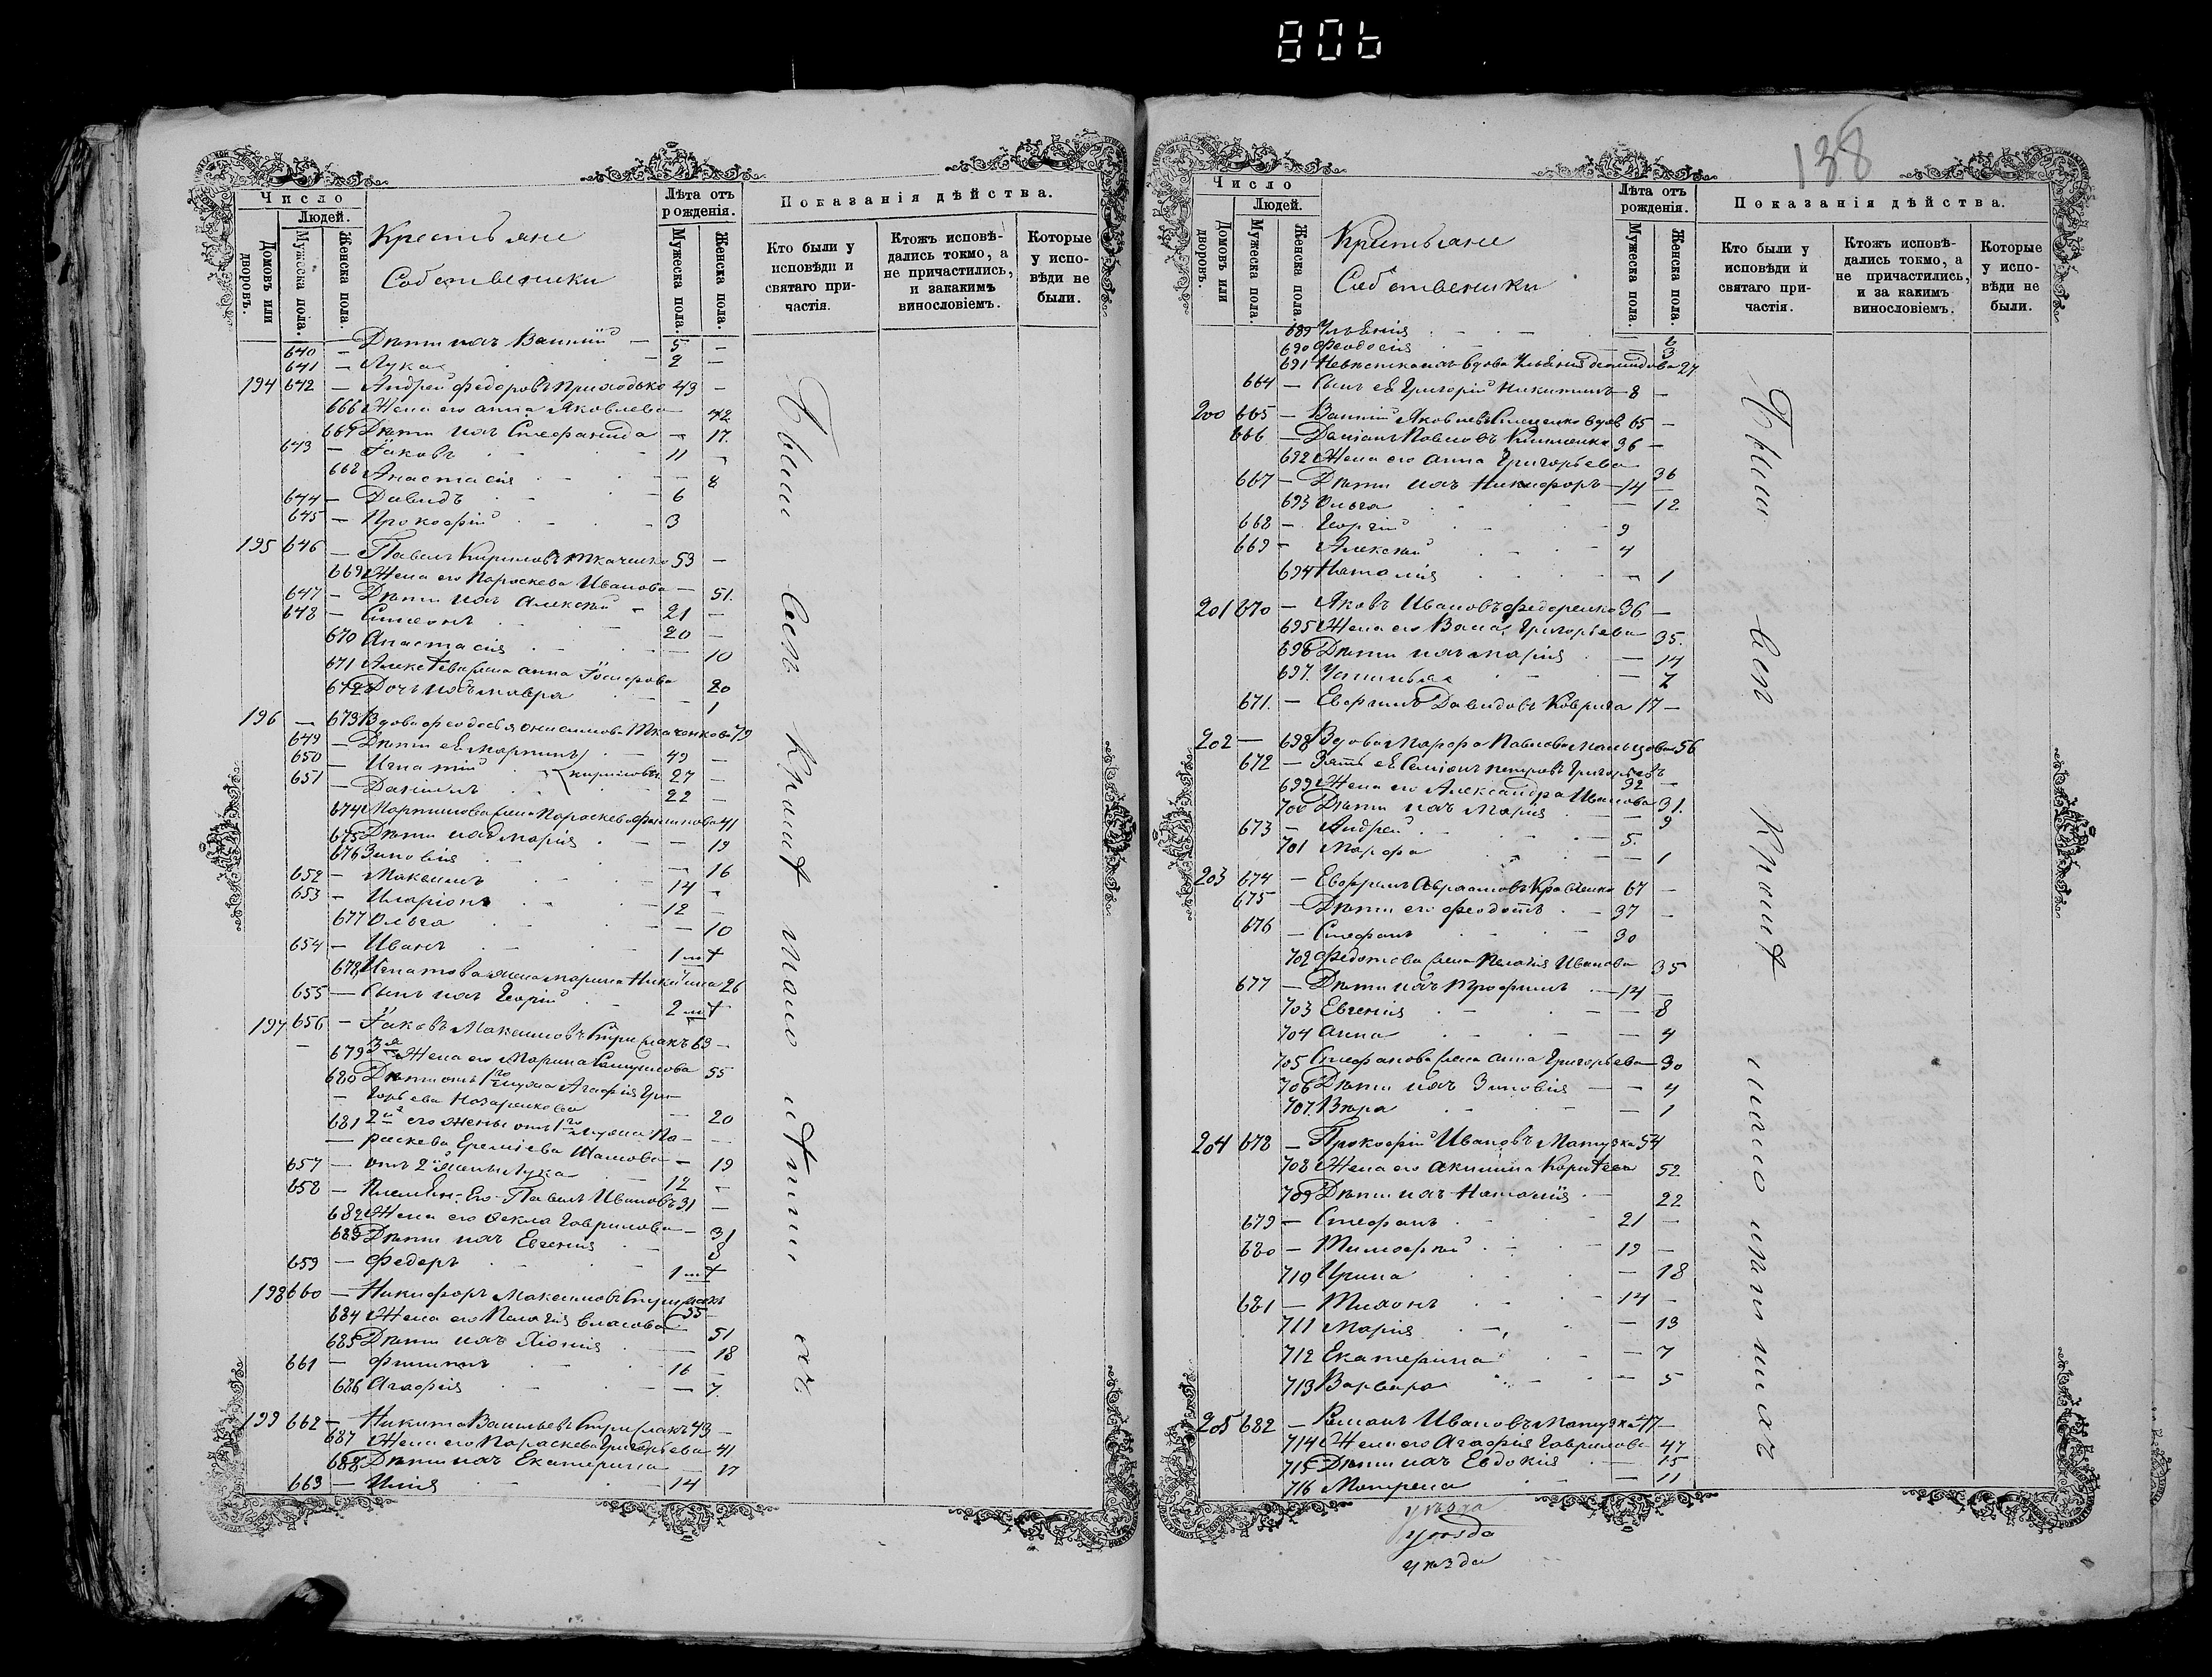 806
Число
Людей.
Домовъ или дворовъ.
Мужеска пола.
Женска пола.
Крестьяне
Собственики
Лѣта отъ рожденія.
Мужеска пола.
Женска пола.
Показанія дѣйства.
Кто были у исповѣди и святаго причастія.
Ктожъ исповѣдались токмо, а не причастились, и закакимъ винословіемъ.
Которые у исповѣди не были.
640 — Дѣти ихъ Василій — 5 —
641 — Лука — 2 —
194 642 — Андрей Федоровъ Приходько 43 —
666 Жена его Анна Яковлева 42
667 Дѣти ихъ Стефанида — 17.
643 — Іаковъ 11 —
668 Анастасія — 8
644 — Давидъ — 6
645 — Прокофій — 3
195 646 — Павелъ Кириловъ Ткаченко 53 —
669 Жена его Пароскева Иванова — 51.
647 — Дѣти ихъ Алексѣй — 21 —
648 — Симеонъ 20 —
670 Анастасія — 10
671 Алексѣева жена Анна Іосифова 20
672 Дочь ихъ Мавра — 1
196 — 673 Вдова Феодосья Онисимова Ткаченкова 79
649 — Дѣти её Мартинъ 49 —
650 — Игнатій Кириловы 27 —
651 — Даніилъ 22 —
674 Мартинова жена Пароскева 41
675 Дѣти ихъ Марія — 19
676 Зиновія — 16
652 — Максимъ 14 —
653 — Иларіонъ 12 —
677 Ольга — 10
654 — Иванъ 1
678 Игнатова жена Марина 26
655 — Сынъ ихъ Георгій 2
197 656 — Іаковъ Максимовъ Стрижакъ 63 —
679 3я Жена его Марина 55
680 Дѣти отъ 1го мужа Агафія Гри-
— горьева Назаренкова — 20
681 2й его жены отъ 1го мужа Па-
— раскева Еремѣева — 19
657 — отъ 2й жены Лука 12 —
658 — Племян: Его Павелъ Ивановъ 31 —
682 Жена его Фекла Гаврилова — 31
683 Дѣти ихъ Евгенія — 8
659 — Федоръ 1
198 660 — Никифоръ Максимовъ Стрижакъ 55 —
684 Жена его Пелагія Власова 51
685 Дѣти ихъ Хіонія — 18
661 — Филиппъ 16 —
686 Агафія — 7.
199 662 — Никита Васильевъ Стрижакъ 43 —
687 Жена его Параскева Григорьева 41
688 Дѣти ихъ Екатерина — 17
663 — Илія — 14
Были вси кромѣ мало лѣтних
138
Число
Людей.
Домовъ или дворовъ.
Мужеска пола.
Женска пола.
Крестьяне
Собственики
Лѣта отъ рожденія.
Мужеска пола.
Женска пола.
Показанія дѣйства.
Кто были у исповѣди и святаго причастія.
Ктожъ исповѣдались токмо, а не причастились, и за какимъ винословіемъ.
Которые у исповѣди не были.
689 Ульянія — 6
690 Феодосія — 3
691 Невѣстка ихъ вдова Ульянія Демидова 27
664 — Сынъ её Григорій Никитинъ 8 —
200 665 — Василій Яковлевъ вдов 65 —
666 — Даміанъ Павловъ 36 —
692 Жена его Анна Григорьева 36
667 — Дѣти ихъ Никифоръ 14 —
693 Ольга — 12
668 — Георгій 9
669 — Алексѣй 4
694 Наталія — 1
201 670 — Яковъ Ивановъ Федоренко 36 —
695 Жена его Васса Григорьева 35.
696 Дѣти ихъ Марія — 14
697. Ульянія — 7
671. — Давидовъ Коврига 17 —
202 — 698 Вдова Марфа Павлова 56
672 — Зять её Симеонъ Петровъ Григорьевъ 32 —
699 Жена его Александра Иванова 31.
700 Дѣти ихъ Марія — 9
673 — Андрей 5.
701 Марфа — 1
203 674 — Евфремъ Авраамовъ Кравченко 67 —
675 — Дѣти его Феодотъ — 37 —
676 — Стефанъ 30
702 Федотова жена Пелагія Иванова 35
677 — Дѣти ихъ Трофимъ — 14 —
703 Евгенія — 8
704 Анна — 4
705 Стефанова жена Анна Григорьева — 30
706 Дѣти ихъ Зиновія — 4
707. Вѣра — 1
204 678 — Прокофій Ивановъ Матузка 54
708 Жена его Акилина 52
709 Дѣти ихъ Наталія — 22
679 — Стефанъ 21 —
680 — Тимофей 19 —
710 Ирина — 18
681 — Тихонъ 14 —
711 Марія — 13
712 Екатерина — 7
713 Варвара — 5
205 682 — Романъ Ивановъ Матузка 47 —
714 Жена его Агафія Гаврилова 47
715 Дѣти ихъ Евдокія — 15
716 Матрена — 11
Были вси кромѣ мало лѣтних
уѣзда
уѣзда
уѣзда